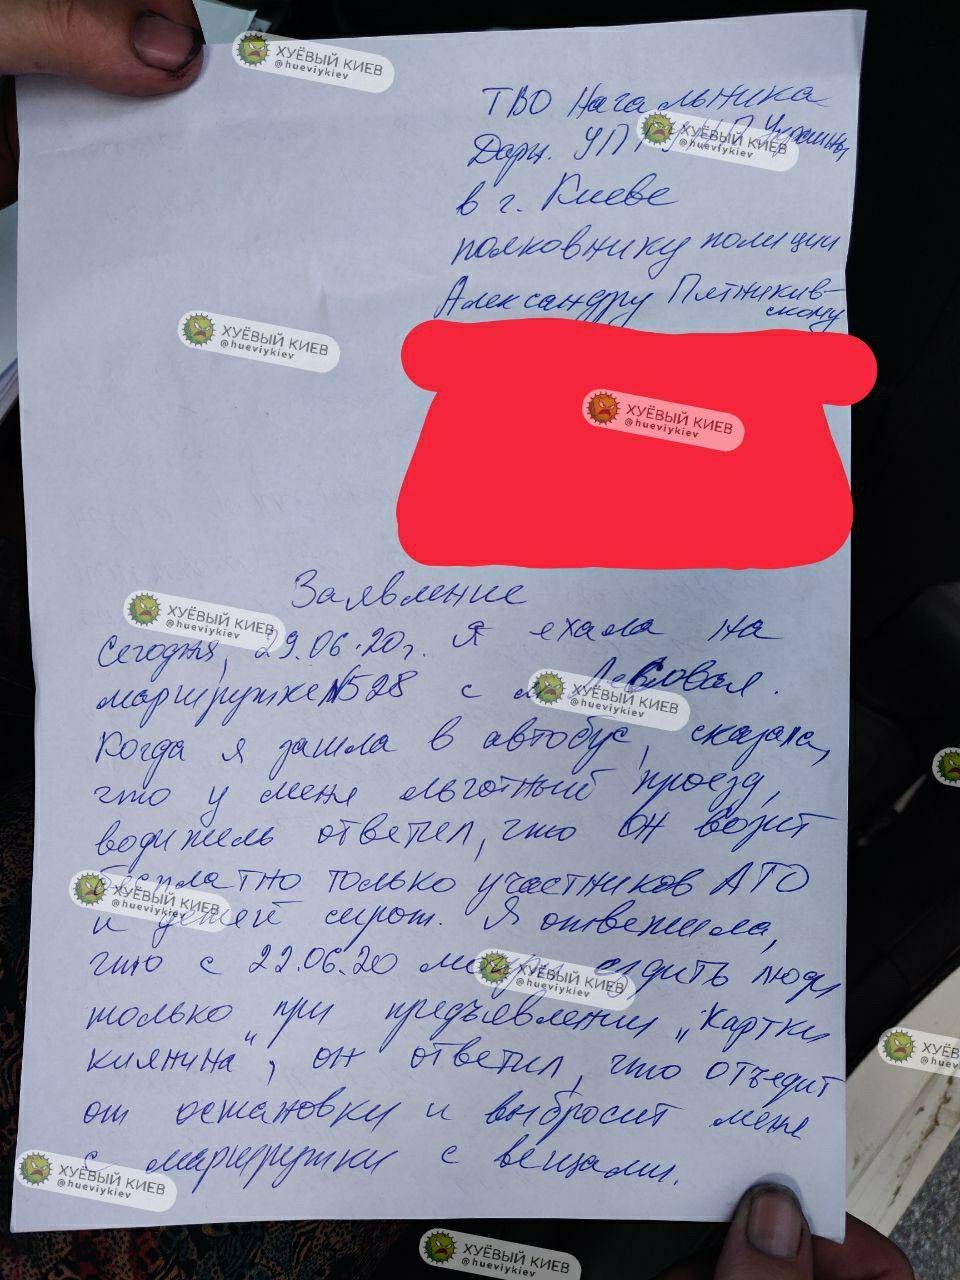 ХУЁВЫЙ КИЕВ
@hueviykiev
ТВО Начальника
Дарн. УП ГУНП Украины
ХУЁВЫЙ КИЕВ
@hueviykiev
в г. Киеве
полковнику полиции
Александру Пятникив-
скому
ХУЁВЫЙ КИЕВ
@hueviykiev
ХУЁВЫЙ КИЕВ
@hueviykiev
Заявление
ХУЁВЫЙ КИЕВ
@hueviykiev
Сегодня, 29.06.20г. Я ехала на
маршрутке №528 с м. Левовая.
ХУЁВЫЙ КИЕВ
@hueviykiev
Когда я зашла в автобус, сказала,
что у меня льготный проезд,
водитель ответил, что он возит
бесплатно только участников АТО
ХУЁВЫЙ КИЕВ
@hueviykiev
и детей сирот. Я ответила,
что с 22.06.20 могут ездить люди
ХУЁВЫЙ КИЕВ
@hueviykiev
только при предъявлении „Картки
киянина", он ответил, что отъедит
ХУЁВ
@huev
от остановки и выбросит меня
с маршрутки с вещами.
ХУЁВЫЙ КИЕВ
@hueviykiev
ХУЁВЫЙ КИЕВ
@hueviykiev